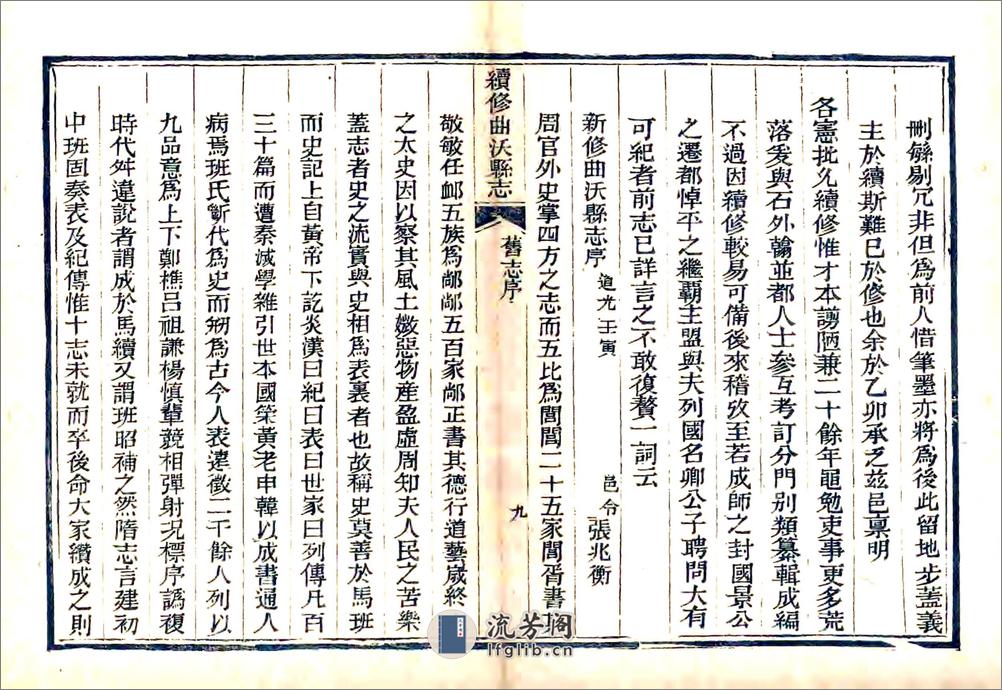 刪繇剔冗非但爲前人惜筆墨亦將爲後此留地步蓋義
主於續斯難已於修也余於乙卯承乏茲邑稟明
各憲批允續修惟才本謭陋兼二十餘年黽勉吏事更多荒
落爰與石外翰並都人士參互考訂分門别類纂輯成編
不過因續修較易可備後來稽攷至若成師之封國景公
之遷都悼平之繼霸主盟與夫列國名卿公子聘問大有
可紀者前志已詳言之不敢復贅一詞云
新修曲沃縣志序 道光壬寅 邑令 張兆衡
周官外史掌四方之志而五比爲閭閭二十五家閭胥書其
續修曲沃縣志 舊志序 九
敬敏任卹五族爲鄰鄰五百家鄰正書其德行道藝歲終
之太史因以察其風土媺惡物産盈虛周知夫人民之苦樂
蓋志者史之流實與史相爲表裏者也故稱史莫善於馬班
而史記上自黃帝下訖炎漢曰紀曰表曰世家曰列傳凡百
三十篇而遭秦滅學雜引世本國策黃老申韓以成書通人
病焉班氏斷代爲史而剏爲古今人表遠徵二千餘人列以
九品意爲上下鄭樵呂祖謙楊慎輩競相彈射况標序譌複
時代舛違說者謂成於馬續又謂班昭補之然隋志言建初
中班固奏表及紀傳惟十志未就而卒後命大家續成之則
流芳閣
lfglib.cn